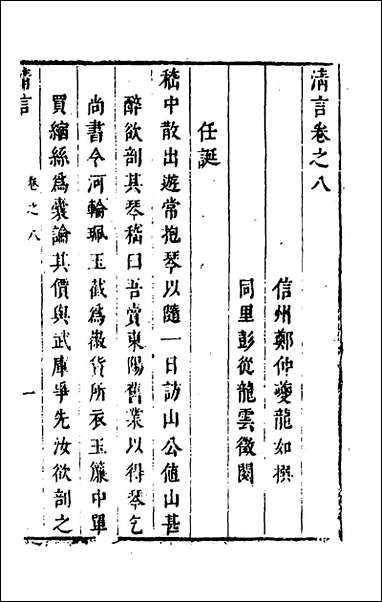 清言卷之八
信州鄭仲夔龍如撰
同里彭從龍雲徵閱
任誕
嵇中散出遊常抱琴以隨一日訪山公值山甚
醉欲剖其琴嵇曰吾賣東陽舊業以得琴乞
尚書令河輪珮玉截為徽貨所衣玉簾中單
買縮絲為囊論其價與武庫爭先汝欲剖之
清言
卷之八
一